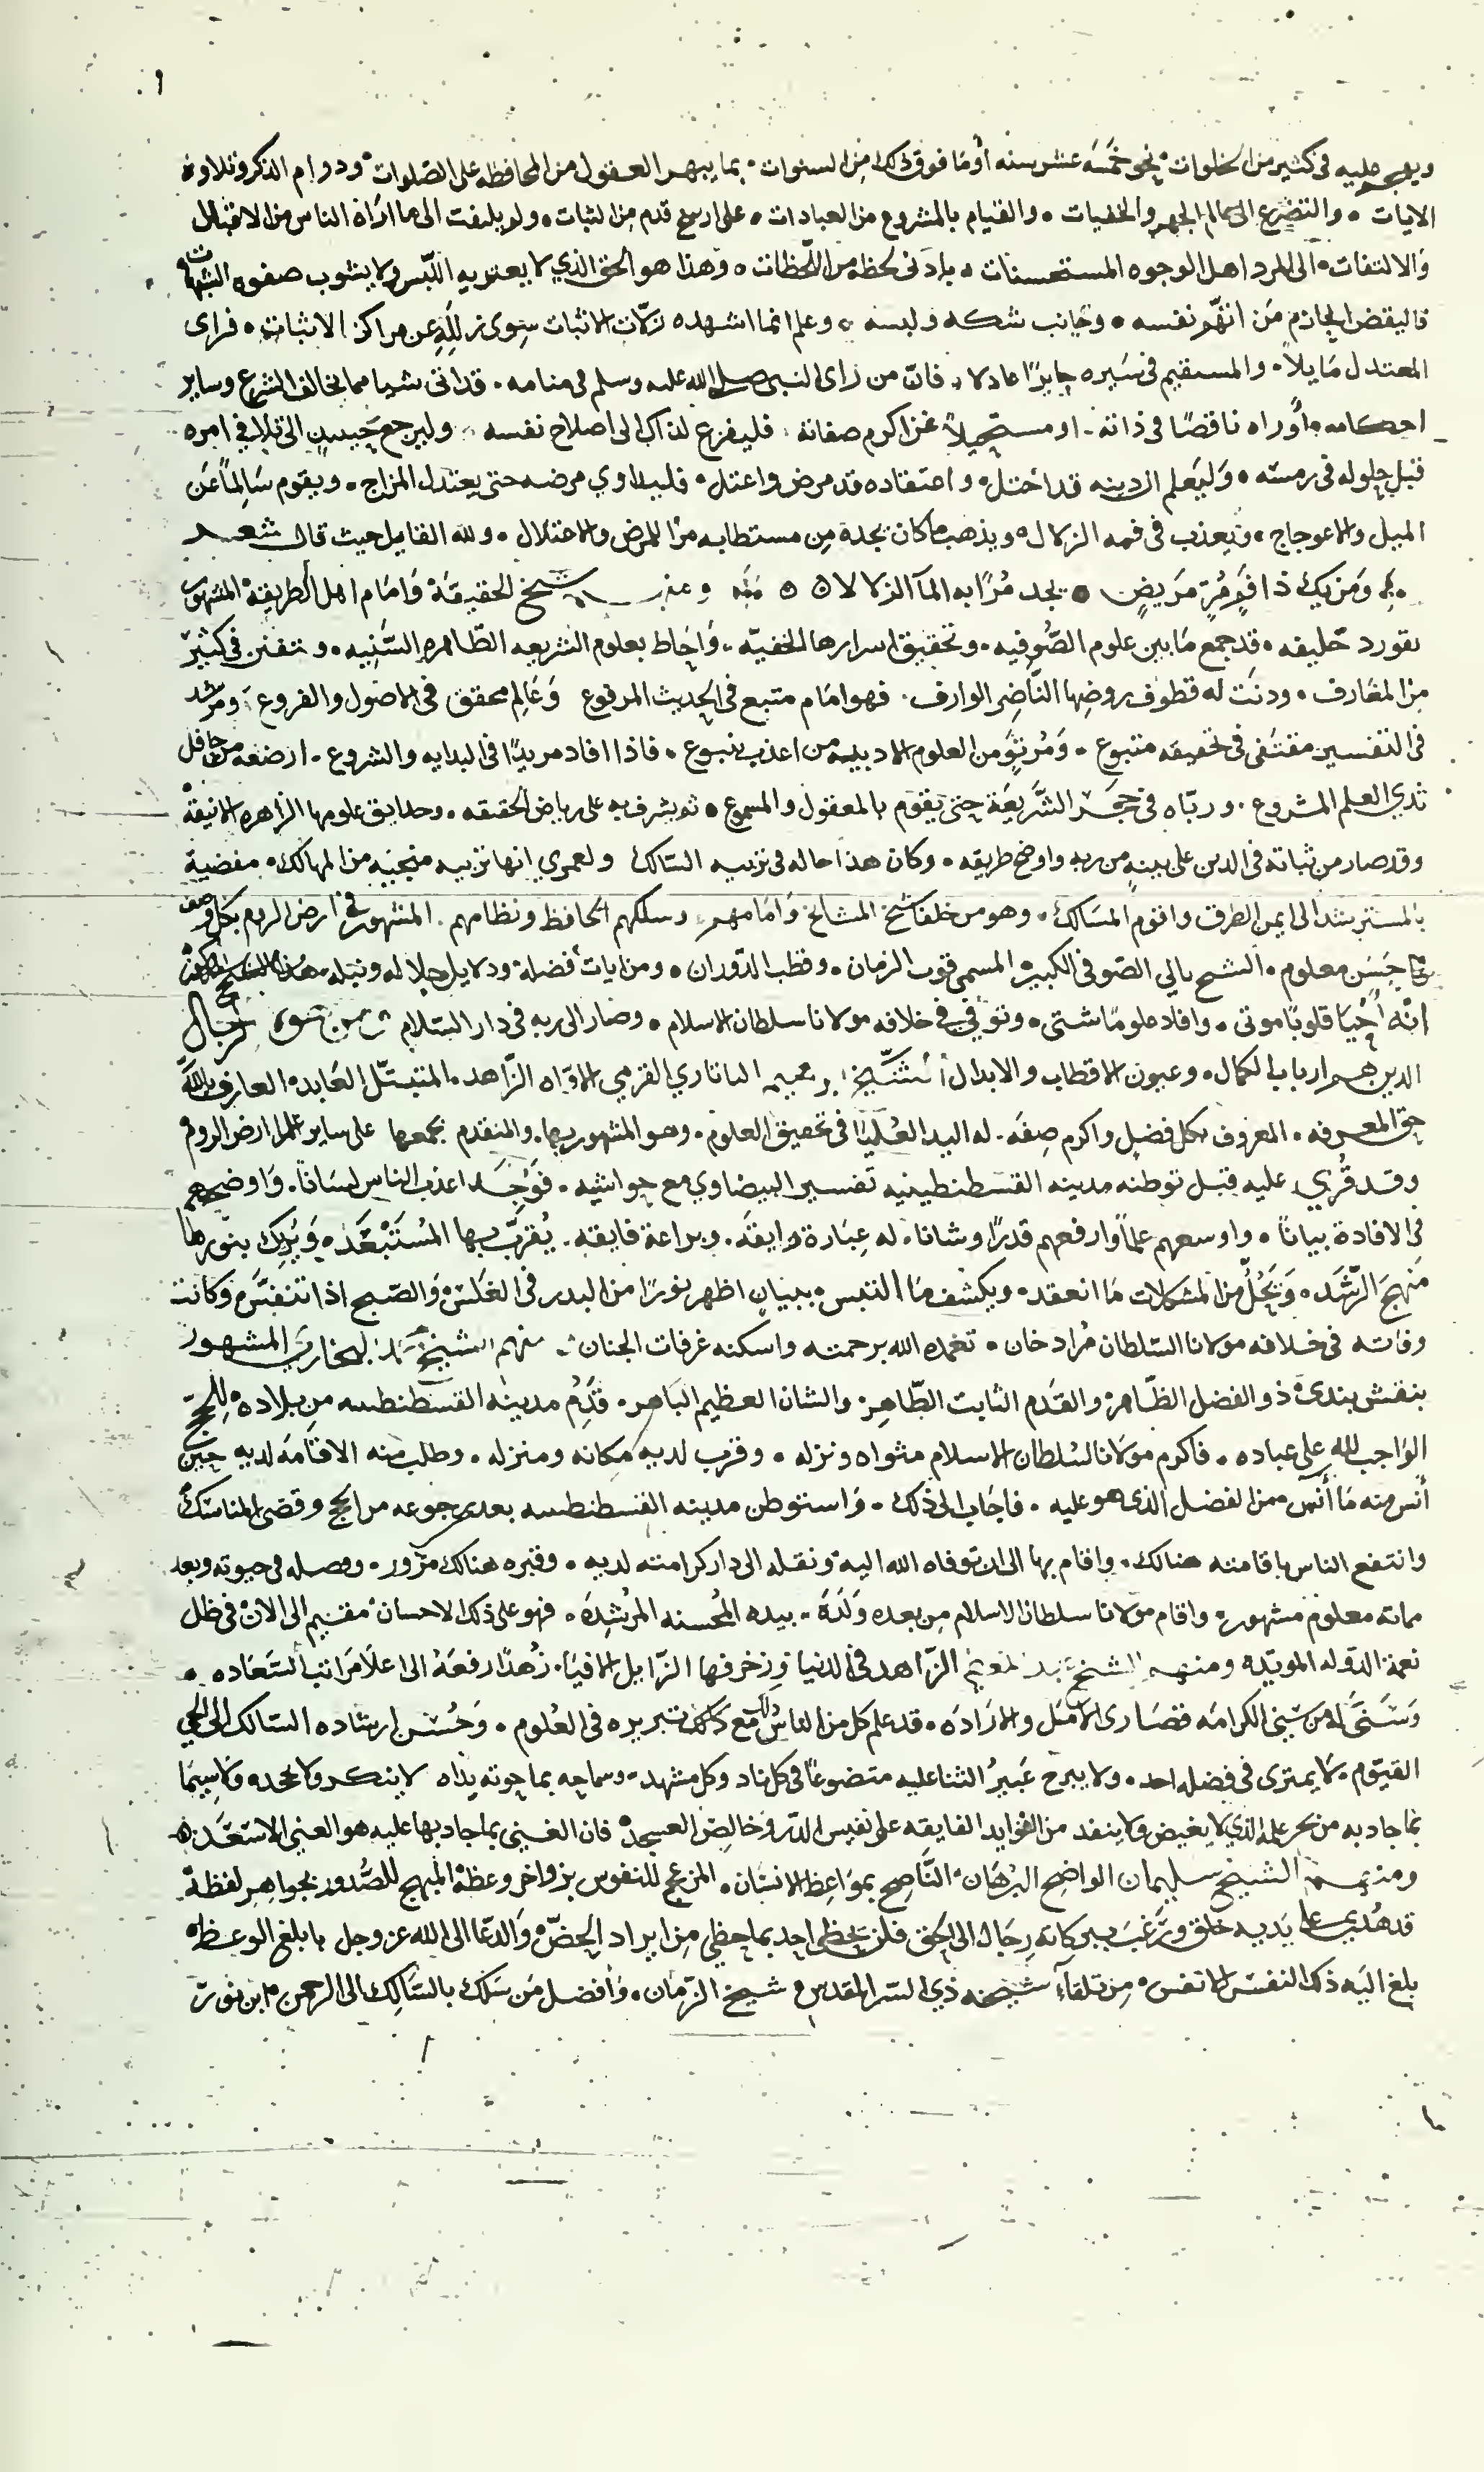 في كثير من الخلوات نحو خمسة عشر سنه أو ما فوق ذلك من السنوات بما يبهر العقول من المحافظه على الصلوات ودوام الذكر وتلاوة
الايات والتضرع الى عالم الجهر والخفيات والقيام بالمشروع من العبادات على ارسخ قدم من الثبات ولم يلتفت الى ما اراه الناس من الاقبال
والالتفات الى المرد اهل الوجوه المستحسنات بادنى لحظه من اللحظات وهذا هو الحق الذي لا يعتريه اللبس ولا يشوب صفوه الشبهات
الجازم من اتهم نفسه وجانب شكه ولبسه وعلم انما اشهده الاثبات سوى عن مراكز الاثبات فراى
المعتدل مايلا والمستقيم في سيره جايرا عادلا فان من راى النبي صلى الله عليه وسلم في منامه قد اتى شيا مما يخالف الشرع وساير
احكامه أو راه ناقصا في ذاته او مستحيلا عن اكرم صفاته فليفزع لذاك الى اصلاح نفسه وليرجع حينيذ الى تلافي امره
قبل حلوله في رمسه وليعلم ان دينه قد اختل واعتقاده قد مرض واعتل فليداوي مرضه حتى يعتدل المزاج ويقوم سالما عن
الميل والاعوجاج ويعذب في فمه الزلال ويذهب ما كان يجده من مستطابه من المرض والاختلال ولله القايل حيث قال شعر
ومن يك ذا فم مر مريض يجد مرا به المآ الزلالا شيخ الحقيقة وامام اهل الطريقة المشهور
خليفه قد جمع ما بين علوم الصوفيه وتحقيق اسرارها الخفيه واحاط بعلوم الشريعه الظاهره السنيه وتفنن في كثير
من المعارف ودنت له قطوف روضها الناضر الوارف فهو امام متبع في الحديث المرفوع وعالم محقق في الاصول والفروع ومرشد
في التفسير مقتفى في تحقيقه متبوع من العلوم الادبيه من اعذب ينبوع فاذا افاد مريدا في البدايه والشروع ارضعه من حافل
ثدي العلم المشروع ورباه في حجر الشريعة حتى يقوم بالمعقول والمسموع ثم يشرف به على رياض الحقيقه وحدايق علومها الزاهره الانيقة
وقد صار من ثباته في الدين على بينه من ربه واوضح طريقه وكان هذا حاله في تربيه السالك ولعمري انها تربيه منجيه من المهالك مفضية
بالمسترشد الى ايمن الطرق واقوم المسالك وهو من خلفا شيخ المشايخ وامامهم وسلكهم الحافظ ونظامهم المشهور في ارض الروم بكل وصف
حسن معلوم الشيخ بالي الصوفي الكبير المسمى قوت الزمان وقطب الدوران ومن ايات فضله ودلايل جلاله ونبله
انه أحيا قلوبا موتى وافاد علوما شتى وتوفي في خلافه مولانا سلطان الاسلام وصار الى ربه في دار السلام الرجال
الذين هم ارباب الكمال وعيون الاقطاب والابدال الشيخ التاتاري القرمي الاواه الزاهد المتبتل العابد العارف بالله
حق المعرفه المعروف بكل فضل واكرم صفه له اليد العليا في تحقيق العلوم وهو المشهور بها والمتقدم بجمعها على ساير علما ارض الروم
وقد قري عليه قبل توطنه مدينه القسطنطينيه تفسير البيضاوي مع حواشيه فوجد اعذب الناس لسانا واوضحهم
في الافادة بيانا واوسعهم علما وارفعهم قدرا وشانا له عبارة رايقة وبراعة فايقه يقرب بها المستبعد ويدرك بنورها
منهج الرشد ويحل من المشكلات ما انعقد ويكشف ما التبس ببيان اظهر نورا من البدر في الغلس والصبح اذا تنفس وكانت
وفاته في خلافه مولانا السلطان مراد خان تغمده الله برحمته واسكنه غرفات الجنان منهم الشيخ البخاري المشهور
بنقش بندى ذو الفضل الظاهر والقدم الثابت الطاهر والشان العظيم الباهر قدم مدينه القسطنطينيه من بلاده للحج
الواجب لله على عباده فاكرم مولانا السلطان الاسلام مثواه ونزله وقرب لديه مكانه ومنزله وطلب منه الاقامه لديه حين
أنس منه ما أنس من الفضل الذي هو عليه فاجاب الى ذلك واستوطن مدينه القسطنطينيه بعد رجوعه من الحج وقضى المناسك
وانتفع الناس باقامته هنالك واقام بها الى ان توفاه الله اليه ونقله الى دار كرامته لديه وقبره هنالك مزور وفضله في حيوته وبعد
مماته معلوم مشهور واقام مولانا سلطان الاسلام من بعده ولده بيده المحسنه المرشده فهو على ذلك الاحسان مقيم الى الان في ظل
نعمة الدوله المويده ومنهم الشيخ الزاهد في الدنيا وزخرفها الزايل الافيا زهدا رفعه الى اعلا مراتب السعاده
من سني الكرامه قصارى الامل والاراده قد علم كل من الناس مع ذلك تبريره في العلوم وحسن ارشاده السالك الى الحي
القيوم لا يمترى في فضله احد ولا يبرح عبير الثنا عليه متضوعا في كل ناد وكل مشهد وسماحه بما حوته يداه لا ينكر ولا يجحد ولا سيما
بما جاد به من بحر علمه الذي لا يغيض ولا ينفد من الفوايد الفايقه على نفيس الدر وخالص العسجد فان الغني بما جاد بها عليه هو الغني الاسعد
ومنهم الشيخ سليمان الواضح البرهان الناصح بمواعظ الانسان المزعج للنفوس بزواجر وعظه المبهج للصدور بجواهر لفظه
قد هدى على يديه خلق ورغب ببركاته رجال الى الحق فلن يحظى احد بما حظي من ايراد الحض والدعا الى الله عز وجل ما بلغ الوعظ
بلغ اليه ذلك النفس الانفس من تلقآء شيخه ذي السر المقدس شيخ الزمان وافضل من سلك بالسالك الى الرحمن